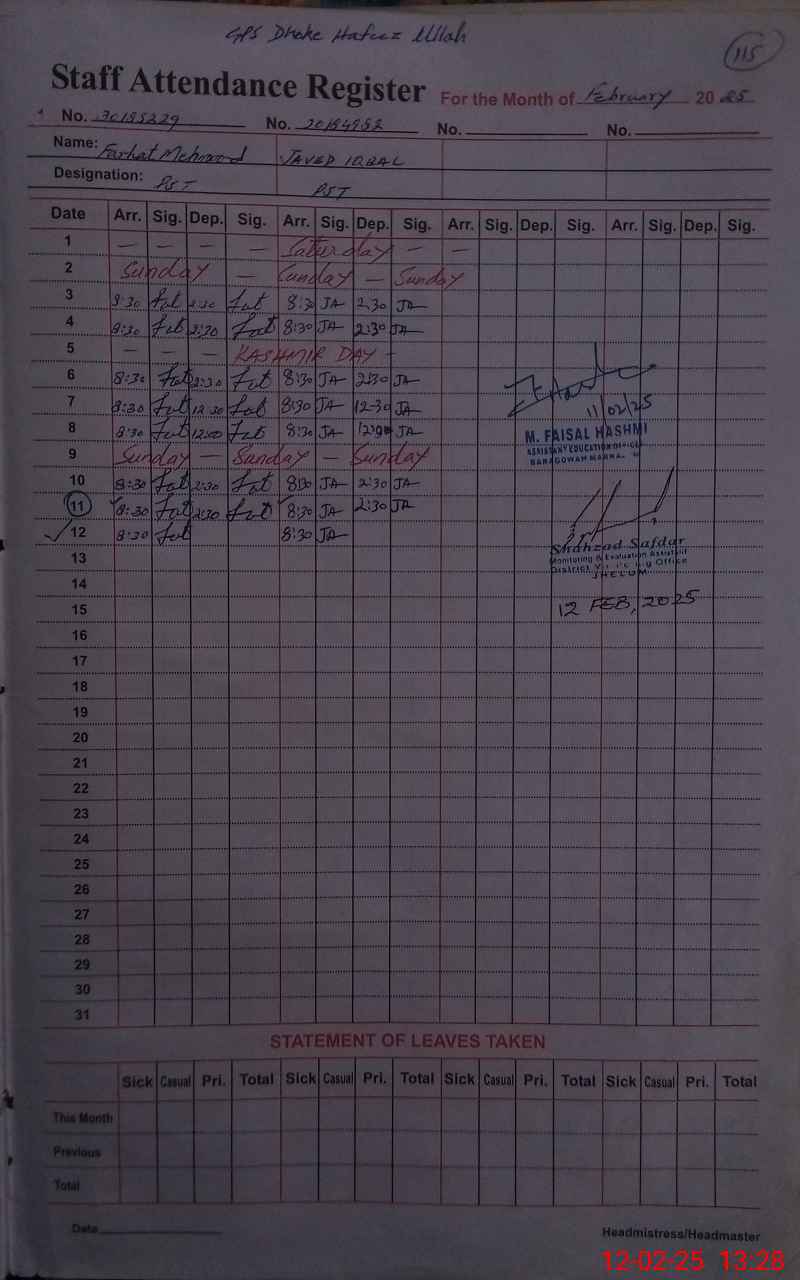 GPS Dhoke Hafeez Ullah
115
Staff Attendance Register For the Month of February 2025
No. 30195229 No. No. No.
Name: Farhat Mehmood JAVED IQBAL
Designation: PST PST
Date Arr. Sig. Dep. Sig. Arr. Sig. Dep. Sig. Arr. Sig. Dep. Sig. Arr. Sig. Dep. Sig.
1 — — — — Saturday — —
2 Sunday — Sunday — Sunday
3 8:30 Fat 2:30 Fat 8:30 JA 2:30 JA
4 8:30 Fat 2:30 Fat 8:30 JA 2:30 JA
5 — — — KASHMIR DAY -
6 8:30 Fat 2:30 Fat 8:30 JA 2:30 JA
7 8:30 Fat 12:30 Fat 8:30 JA 12-30 JA
11/02/25
8 8:30 Fat 12:00 Fat 8:30 JA JA
M. FAISAL HASHMI
ASSISTANT EDUCATION OFFICER
9 Sunday — Sunday — Sunday
10 8:30 Fat 2:30 Fat 8:30 JA 2:30 JA
11 8:30 Fat 2:30 Fat 8:30 JA 2:30 JA
12 8:30 Fat 8:30 JA
Shahzad Safdar
Monitoring & Evaluation Assistant
District Office
JHELUM
13
14
15
12 FEB, 2025
16
17
18
19
20
21
22
23
24
25
26
27
28
29
30
31
STATEMENT OF LEAVES TAKEN
Sick Casual Pri. Total Sick Casual Pri. Total Sick Casual Pri. Total Sick Casual Pri. Total
This Month
Previous
Total
Date
Headmistress/Headmaster
12-02-25 13:28